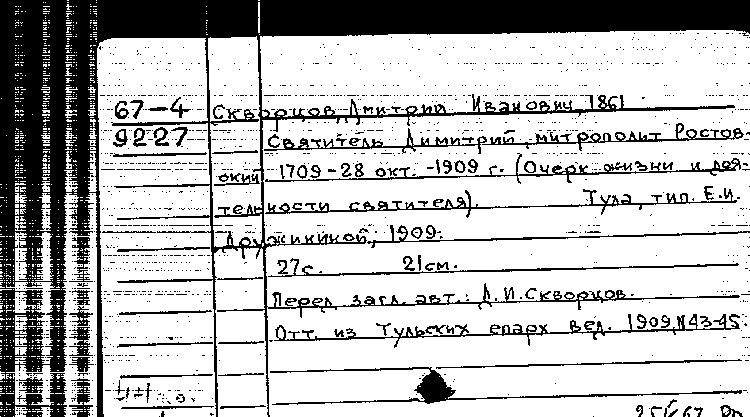 67-4 Скворцов, Дмитрий Иванович, 1861
9227 Святитель Димитрий, митрополит Ростов-
ский. 1709-28 окт.-1909 г. (Очерк жизни и дея-
тельности святителя). Тула, тип. Е.И.
Дружининой, 1909.
27с. 21см.
Перед загл. авт.: Д.И.Скворцов.
Отт. из Тульских епарх вед. 1909,N43-45.